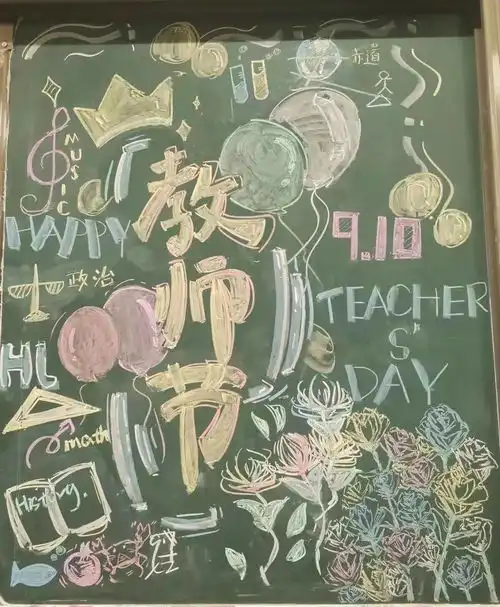 赤道
MUSIC
HAPPY
教师节
9.10
政治
TEACHER
S'
DAY
Hi
math
History.